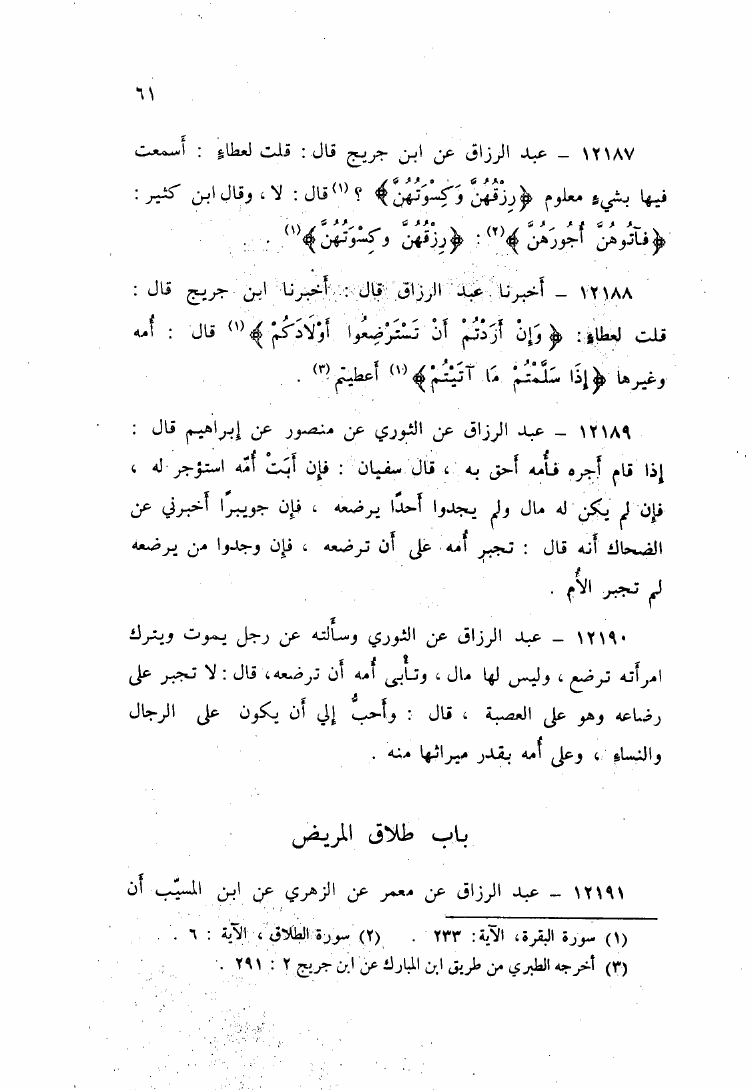 ٦١
١٢١٨٧ – عبد الرزاق عن ابن جريج قال : قلت لعطاءٍ : أَسمعت
فيها بشيءٍ معلوم ﴿رِزْقُهُنَّ وَكِسْوَتُهُنَّ﴾ ؟ (١) قال : لا ، وقال ابن كثير :
﴿فَآتُوهُنَّ أُجُورَهُنَّ﴾ (٢) : ﴿رِزْقُهُنَّ وكِسْوَتُهُنَّ﴾ (١) .
١٢١٨٨ – أَخبرنا عبد الرزاق قال : أَخبرنا ابن جريج قال :
قلت لعطاءٍ : ﴿وَإِنْ أَرَدْتُمْ أَنْ تَسْتَرْضِعُوا أَوْلَادَكُمْ﴾ (١) قال : أُمه
وغيرها ﴿إِذَا سَلَّمْتُمْ مَا آتَيْتُمْ﴾ (١) أَعطيتم (٣) .
١٢١٨٩ – عبد الرزاق عن الثوري عن منصور عن إبراهيم قال :
إذا قام أَجره فأُمه أَحق به ، قال سفيان : فإن أَبَتْ أُمّه استؤجر له ،
فإن لم يكن له مال ولم يجدوا أَحدًا يرضعه ، فإن جويبرًا أَخبرني عن
الضحاك أَنه قال : تجبر أُمه على أَن ترضعه ، فإن وجدوا من يرضعه
لم تجبر الأُم .
١٢١٩٠ – عبد الرزاق عن الثوري وسأَلته عن رجل يموت ويترك
امرأَته ترضع ، وليس لها مال ، وتأْبى أُمه أَن ترضعه، قال : لا تجبر على
رضاعه وهو على العصبة ، قال : وأَحبُّ إلي أَن يكون على الرجال
والنساءِ ، وعلى أُمه بقدر ميراثها منه .
باب طلاق المريض
١٢١٩١ – عبد الرزاق عن معمر عن الزهري عن ابن المسيّب أَن
(١) سورة البقرة، الآية : ٢٣٣ . (٢) سورة الطلاق ، الآية : ٦ .
(٣) أخرجه الطبري من طريق ابن المبارك عن ابن جريج ٢ : ٢٩١ .